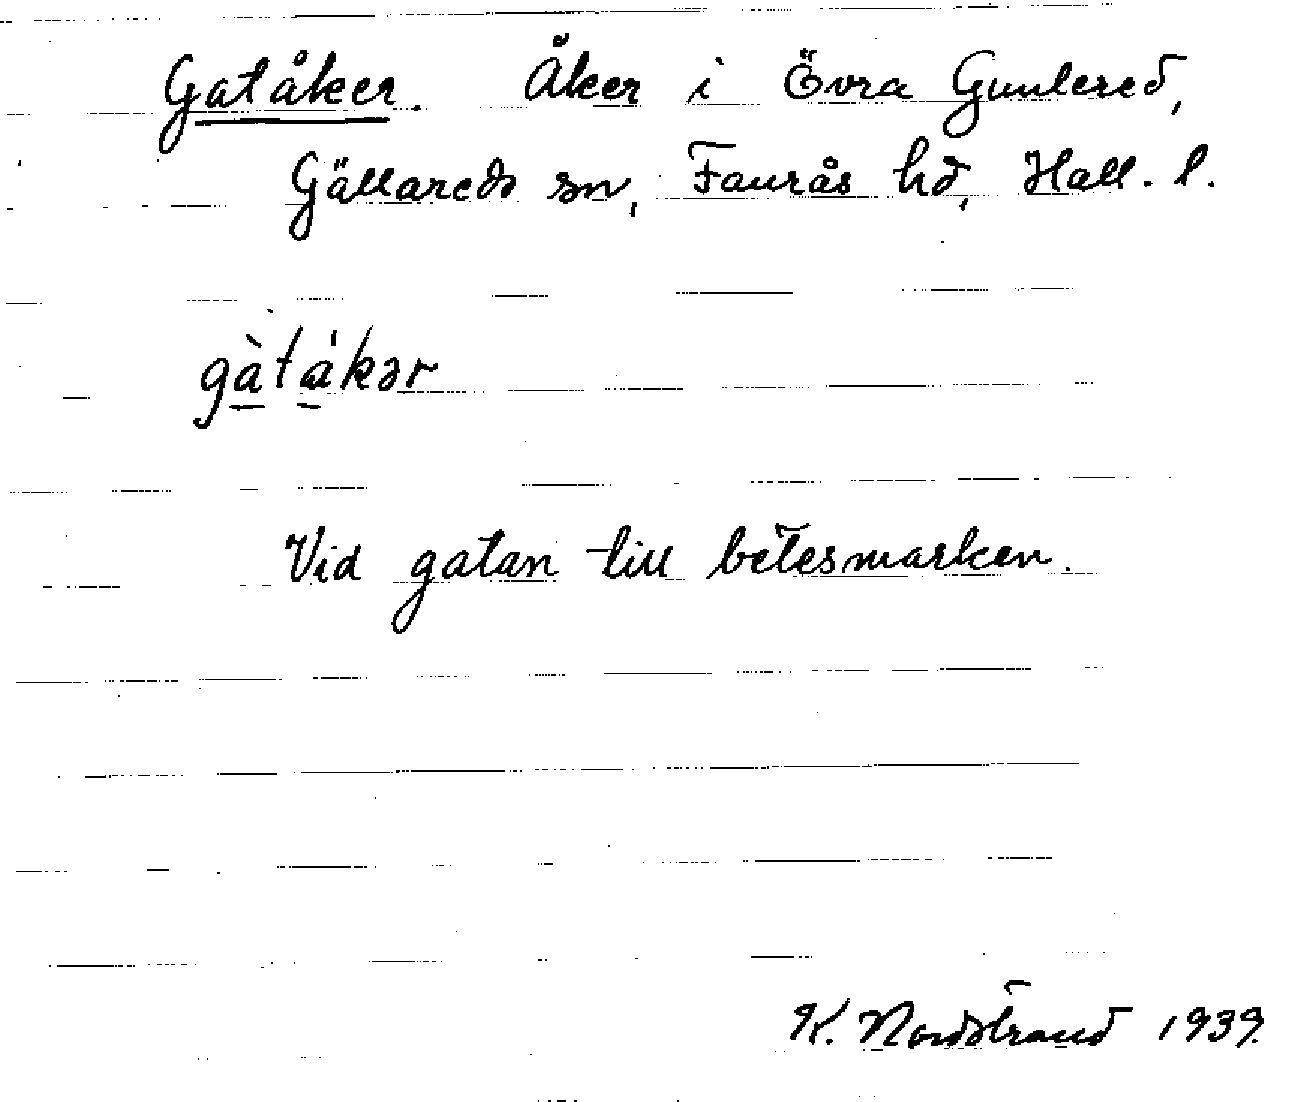 Gatåker. Åker i Övra Gunlered,
Gällareds sn, Faurås hd, Hall. l.
gàtåkər
Vid gatan till betesmarken.
K. Nordstrand 1939.